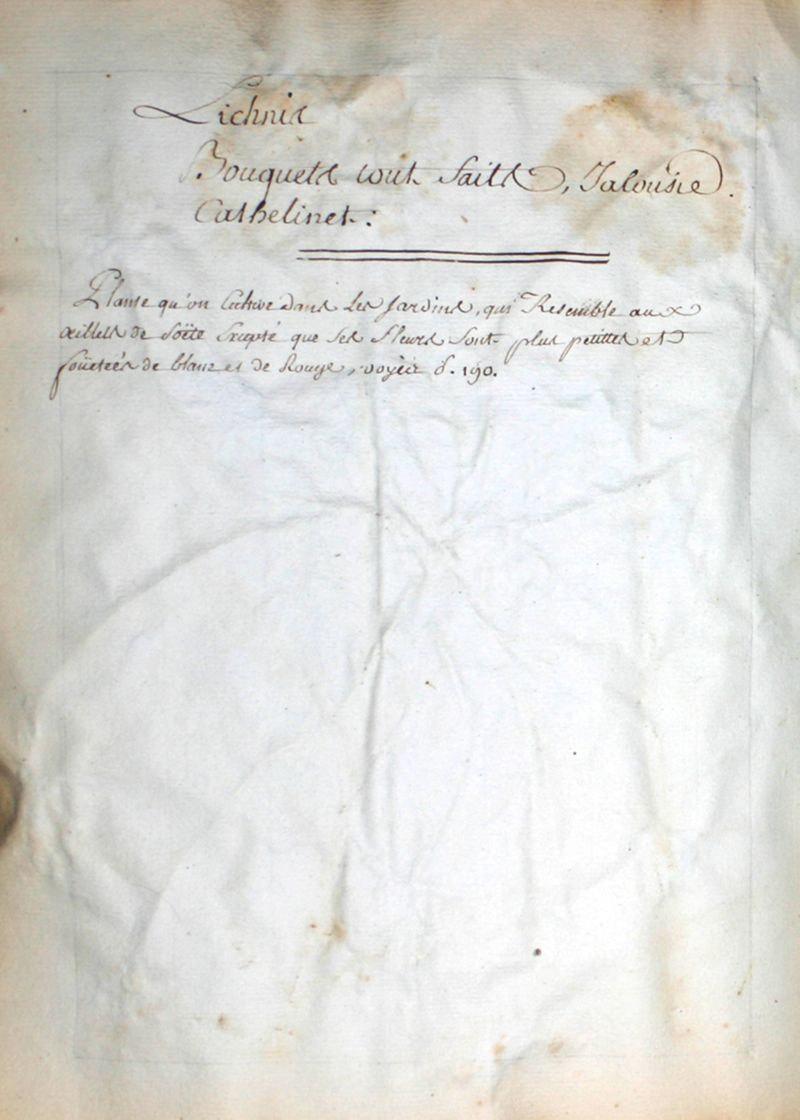 Lichnis
Bouquets tout faits, Jalousie.
Cathelinet:
Plante qu'on Cultive dans les jardins, qui Resemble aux
œillets de Poëte Excepté que ses fleurs sont plus petittes et
foüeteés de blanc et de Rouge, voyéz f. 190.